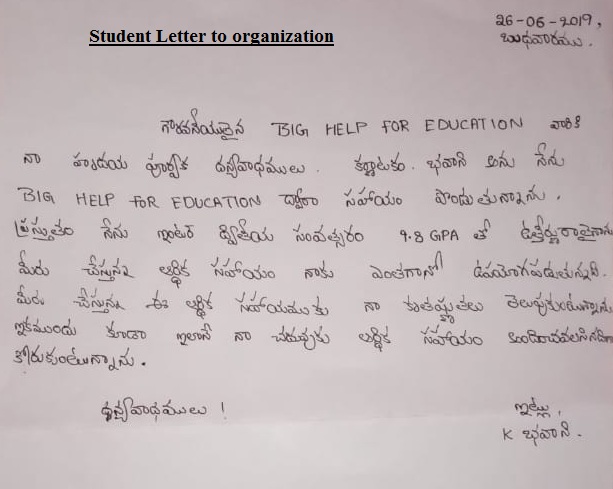 26-06-2019,
Student Letter to organization
బుధవారము.
గౌరవనీయులైన BIG HELP FOR EDUCATION వారికి
నా హృదయ పూర్వక ధన్యవాధములు. కర్ణాటకం. భవాని అను నేను
BIG HELP FOR EDUCATION ద్వారా సహాయం పొందుతున్నాను.
ప్రస్తుతం నేను ఇంటర్ ద్వితీయ సంవత్సరం 9.8 GPA తో ఉత్తీర్ణురాలైనాను
మీరు చేస్తున్న ఆర్థిక సహాయం నాకు ఎంతగానో ఉపయోగపడుతున్నది.
మీరు చేస్తున్న ఈ ఆర్థిక సహాయముకు నా కృతఙ్ఞతలు తెలుపుకుంటున్నాను
ఇకముందు కూడా ఇలానే నా చదువుకు ఆర్థిక సహాయం అందించవలసినదిగా
కోరుకుంటున్నాను.
ధన్యవాధములు !
ఇట్లు,
K భవాని.